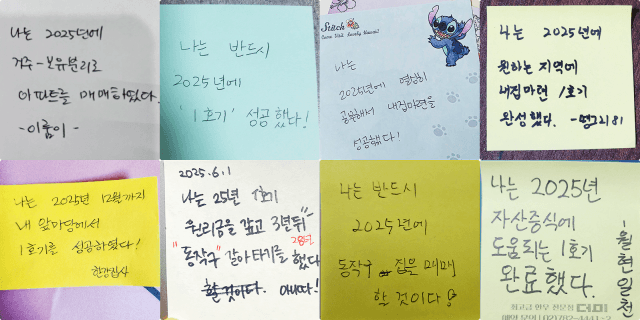 나는 2025년에
거주-보유분리로
아파트를 매매하였다.
-이룸이-
나는 반드시
2025년에
'1호기' 성공했다!
Stitch
나는
2025년에 열심히
공부해서 내집마련을
성공했다!
나는 2025년에
원하는 지역에
내집마련 1호기
완성했다.
나는 2025년 12월까지
내 앞마당에서
1호기를 성공하였다!
한강집사
2025.6.1
나는 25년 1호기
원리금을 갚고 3년뒤
28년
"동작구" 갈아타기를 했다
할것이다.
나는 반드시
2025년에
동작구 집을 매매
할 것이다!
나는 2025년
자산증식에
도움되는 1호기
완료했다.
-월현일천
최고급 한우 전문점 더미